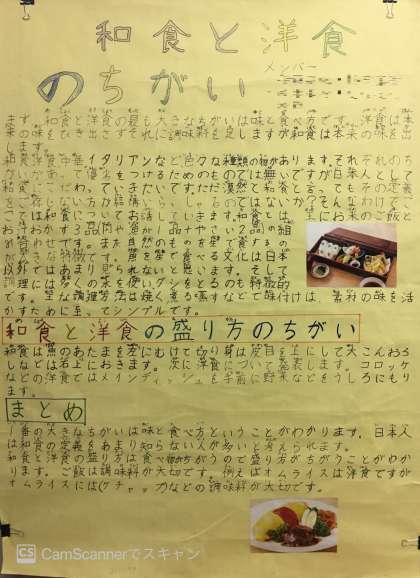 和食と洋食
のちがい
メンバー
ます。和食と洋食の最も大きなちがいは味と食べ方です。洋食は本
来の味をひき出さずそれに調味料を足しますが和食は本来の味を出
します。
和食洋食中華イタリアンなど色々な種類の物があります。それぞれのち
がいがあって優劣をつけるためのものでは無いですが日本人として
和食にこだわっていきたいです。ただ漠然と和食と言ってもその定義
をご存じない方が結構いらっしゃるのではないか?そんなわけでこ
こでは和食についてお話していきます。和食とは 主にお米のご飯と
お汁おかず3品
合わせです。また自然のものを
が大きな特徴です。 を食べる文化は日本
以外ではあまり見られないと思います。そして
調理には多くの を使いダシをとるのも特徴的
です。主な調理方法は焼く煮る蒸すなどで味付けは、 の味を活
かすために至ってシンプルです。
和食と洋食の盛り方のちがい
和食は魚のあたまを左にむけて切り身は皮目を上にして大こんおろ
しなどは右上におきます。次に洋食について発表します。コロッケ
などの洋食ではメインディッシュを手前に野菜などをうしろにもり
ます。
まとめ
1番の大きなちがいは味と食べ方ということがわかります。日本人
は和食の定義をあまり知らない人が多いと考えられます。
和食と洋食の盛り方は食べ物がちがうので盛り方がちがうことがわか
ります。ご飯は調味料が大切です。例えばオムライスは洋食ですが
オムライスには(ケチャップ)などの調味料が大切です。
CS CamScannerでスキャン